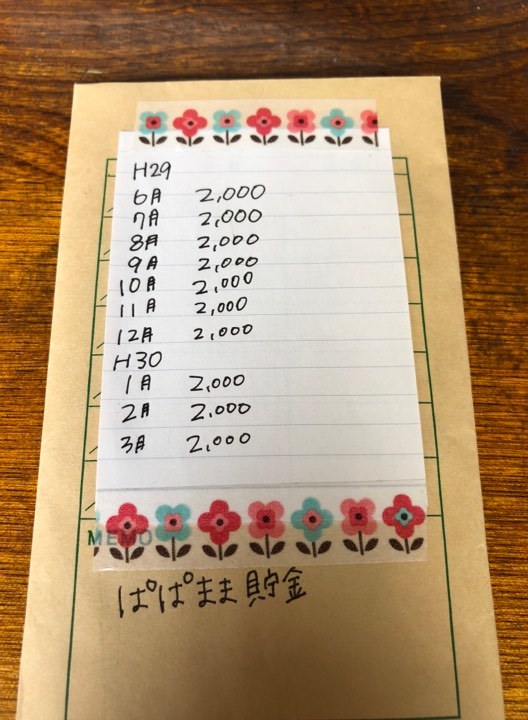 H29
6月 2,000
7月 2,000
8月 2,000
9月 2,000
10月 2,000
11月 2,000
12月 2,000
H30
1月 2,000
2月 2,000
3月 2,000
MEMO
ぱぱまま貯金